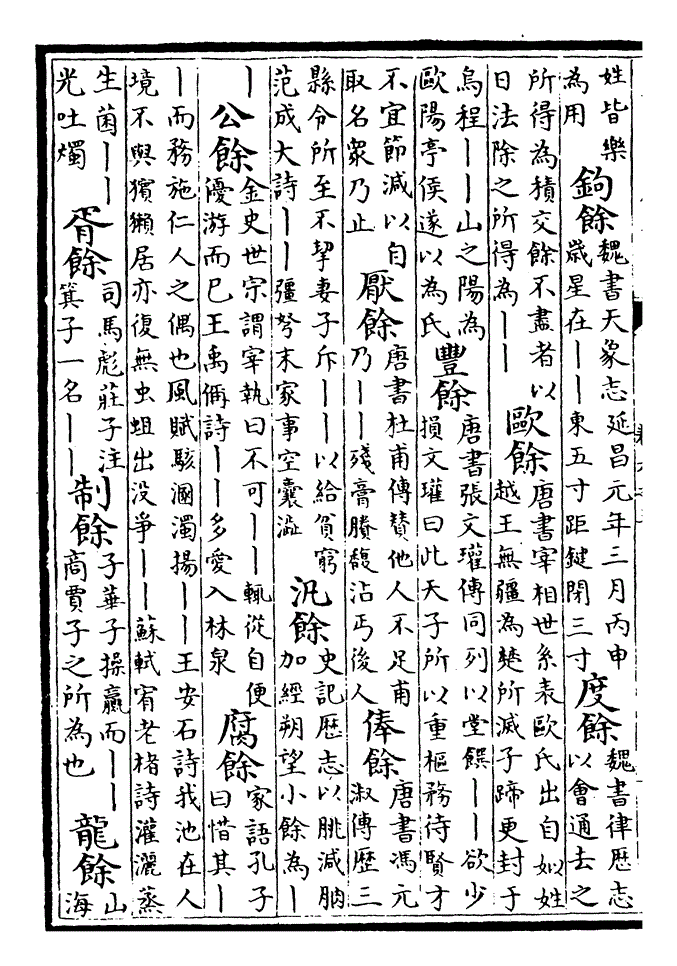 姓皆樂
為用
鉤餘
魏書天象志延昌元年三月丙申
歲星在丨丨東五寸距鍵閉三寸
度餘
魏書律厯志
以會通去之
所得為積交餘不盡者以
日法除之所得為丨丨
歐餘
唐書宰相世系表歐氏出自姒姓
越王無疆為楚所滅子蹄更封于
烏程丨丨山之陽為
歐陽亭侯遂以為氏
豐餘
唐書張文瓘傳同列以堂饌丨丨欲少
損文瓘曰此天子所以重樞務待賢才
不宜節減以自
取名衆乃止
厭餘
唐書杜甫傳贊他人不足甫
乃丨丨殘膏賸馥沾丐後人
俸餘
唐書馮元
淑傳歷三
縣令所至不挈妻子斥丨丨以給貧窮
范成大詩丨丨彊弩末家事空囊澁
汎餘
史記厯志以朓減朒
加經朔望小餘為丨
丨
公餘
金史世宗謂宰執曰不可丨丨輒從自便
優游而已王禹偁詩丨丨多愛入林泉
腐餘
家語孔子
曰惜其丨
丨而務施仁人之偶也風賦駭溷濁揚丨丨王安石詩我池在人
境不與獱獺居亦復無虫蛆出没爭丨丨蘇軾宥老楮詩灌灑蒸
生菌丨丨
光吐燭
胥餘
司馬彪莊子注
箕子一名丨丨
制餘
子華子操贏而丨丨
商賈子之所為也
龍餘
山
海